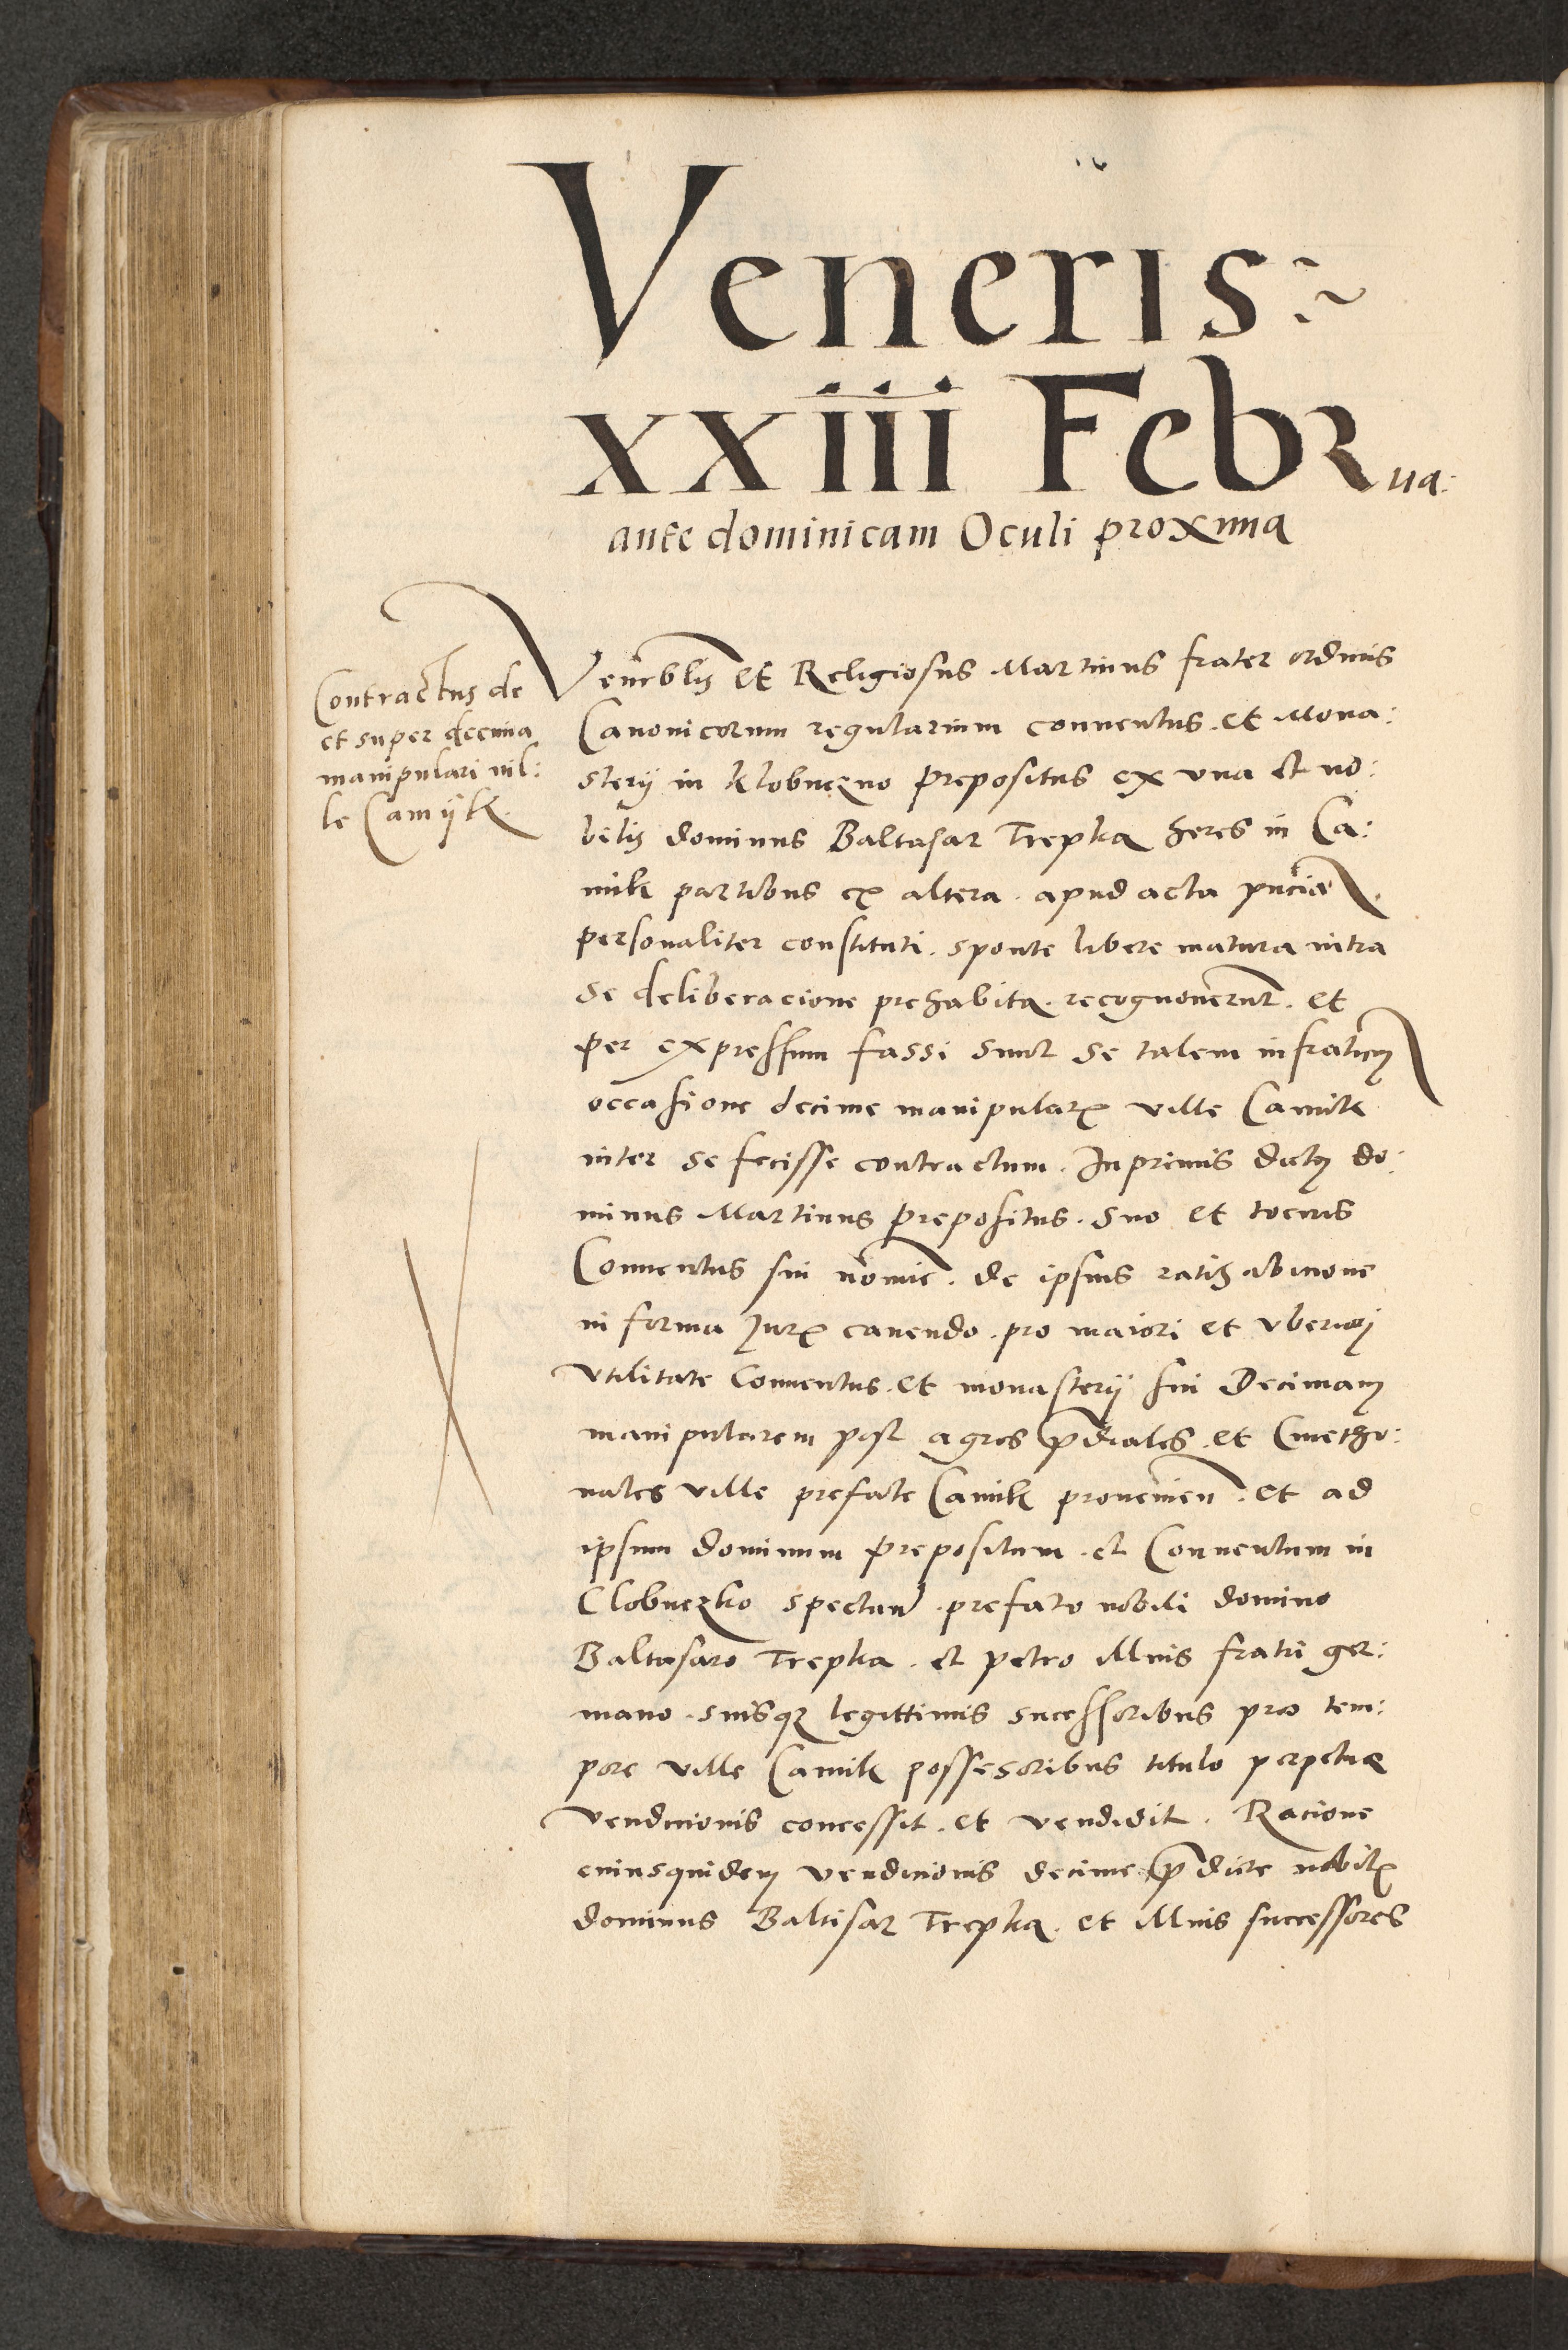 Veneris:~
xxiii Februa:
ante dominicam Oculi proxima
Contractus de
et super decima
manipulari vil:
le Camijk.
Venerablis et Religiosus Martinus frater ordinis
Canonicorum regularium conuentus. et Mona:
sterij in Klobuczno prepositus ex vna et no:
bilis dominus Baltasar Trepka heres in Ca:
mik partibus ex altera. apud acta pncia
personaliter constituti. sponte libere matura intra
se deliberacione prehabita. recognouerunt. et
per expressum fassi sunt se talem infrascm
occasione decime manipularis ville Camik
inter se fecisse contractum. Inprimis dictus do:
minus Martinus prepositus. suo et tocius
Conuentus sui nomie. de ipsius ratihabicione
in forma Juris cauendo. pro maiori et vberiori
vtilitate Conuentus. et monasterij sui Decimam
manipularem post agros prediales. et Cmetho:
nales ville prefate Camik prouenien. et ad
ipsum dominum prepositum. et Conuentum in
Clobuczko spectan. prefato nobili domino
Baltasaro Trepka. et petro illius fratri ger:
mano. suisque legittimis sucessoribus pro tem:
pore ville Camik possesoribus titulo perpetue
vendicionis concessit. et vendidit. Racione
cuiusquidem vendicionis decime predicte nobilis
dominus Baltisar Trepka. et illius successores